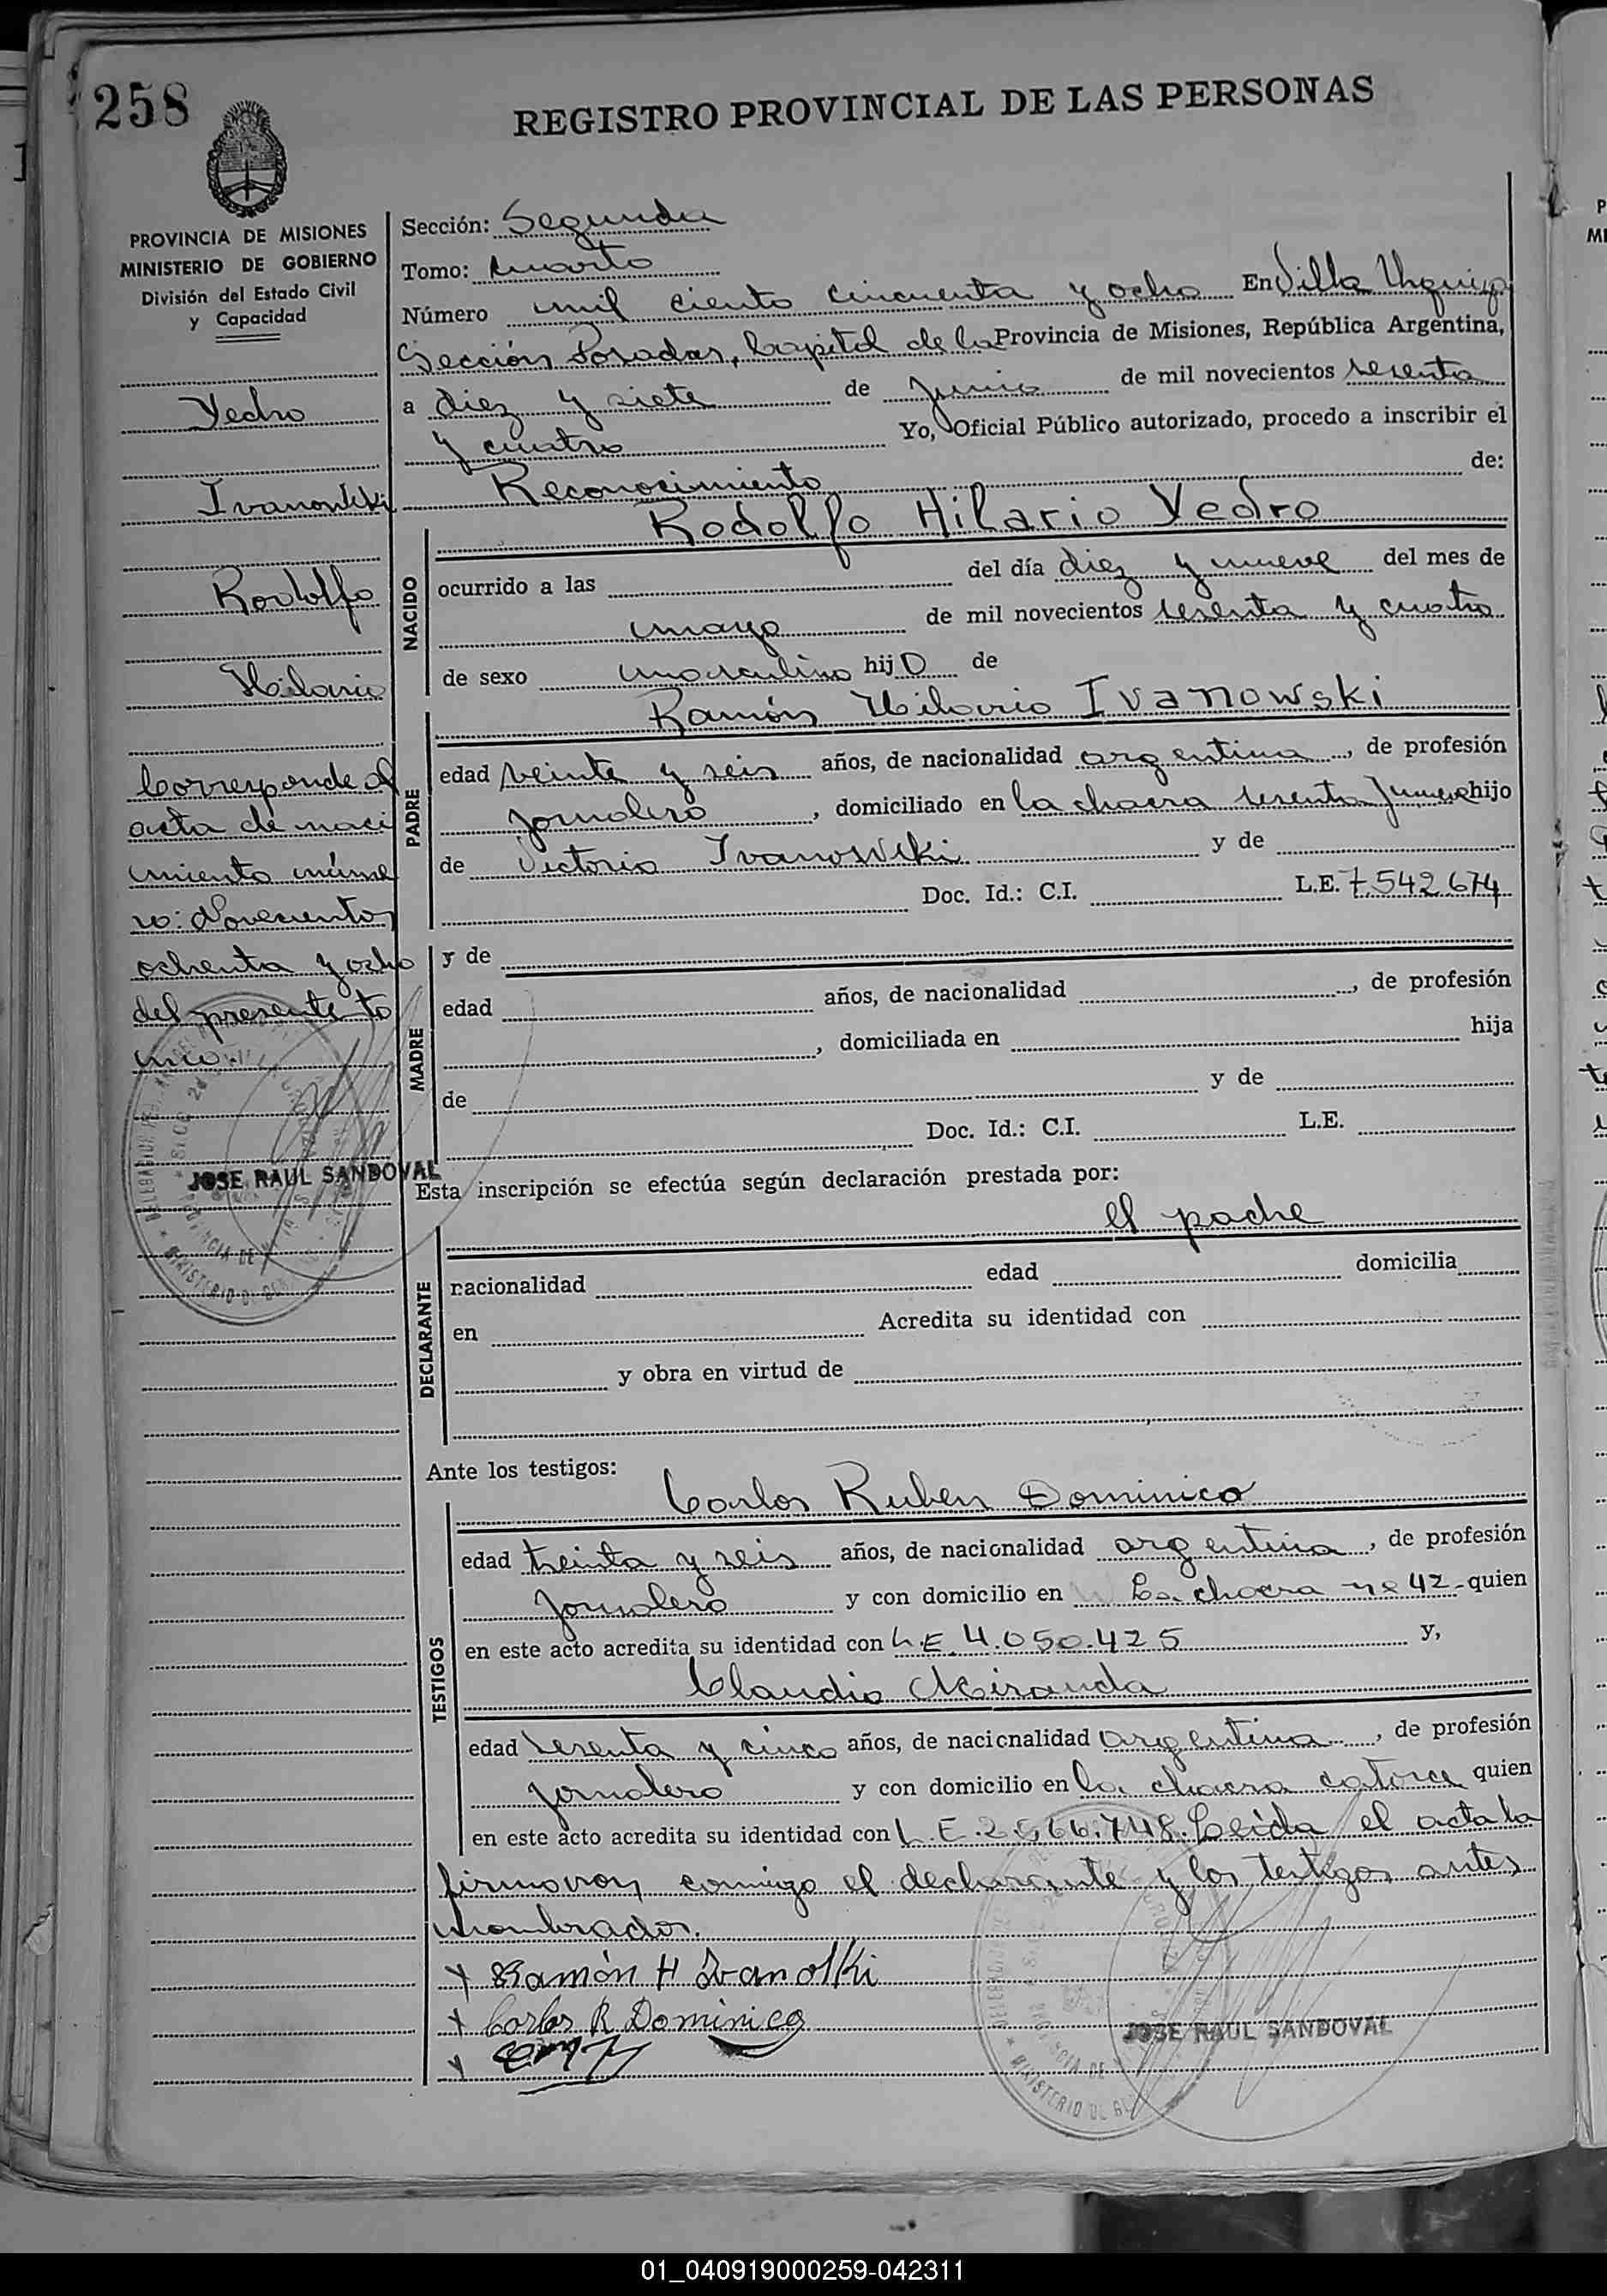 258
REGISTRO PROVINCIAL DE LAS PERSONAS
PROVINCIA DE MISIONES
MINISTERIO DE GOBIERNO
División del Estado Civil
y Capacidad
Yedro
Ivanowski
Rodolfo
Hilario
Corresponde al
acta de naci
miento núme
ro: Novecientos
ochenta y ocho
del presente to
mo.
JOSE RAUL SANDOVAL
Sección: Segunda
Tomo: Cuarto
Número mil ciento cincuenta y ocho En Villa Urquiza
Sección Posadas, Capital de la Provincia de Misiones, República Argentina,
a diez y siete de Junio de mil novecientos sesenta
y cuatro Yo, Oficial Público autorizado, procedo a inscribir el
Reconocimiento de:
NACIDO
Rodolfo Hilario Yedro
ocurrido a las del día diez y nueve del mes de
mayo de mil novecientos sesenta y cuatro
de sexo masculino hijO de
PADRE
Ramón Hilario Ivanowski
edad veinte y seis años, de nacionalidad argentina, de profesión
jornalero, domiciliado en la chacra sesenta y nueve hijo
de Victoria Ivanowski y de
Doc. Id.: C.I. L.E. 7.542.674
MADRE
y de
edad años, de nacionalidad, de profesión
, domiciliada en hija
de y de
Doc. Id.: C.I. L.E.
Esta inscripción se efectúa según declaración prestada por:
el padre
DECLARANTE
nacionalidad edad domicilia
en Acredita su identidad con
y obra en virtud de
Ante los testigos:
TESTIGOS
Carlos Ruben Dominico
edad treinta y seis años, de nacionalidad argentina, de profesión
jornalero y con domicilio en La chacra nº 42- quien
en este acto acredita su identidad con L.E. 4.050.425 y,
Claudio Miranda
edad sesenta y cinco años, de nacionalidad argentina, de profesión
jornalero y con domicilio en la chacra catorce quien
en este acto acredita su identidad con L.E. Leida el acta la
firmaron conmigo el declarante y los testigos antes
nombrados.
Ramón H Ivanoski
Carlos R Dominico
JOSE RAUL SANDOVAL
01_040919000259-042311